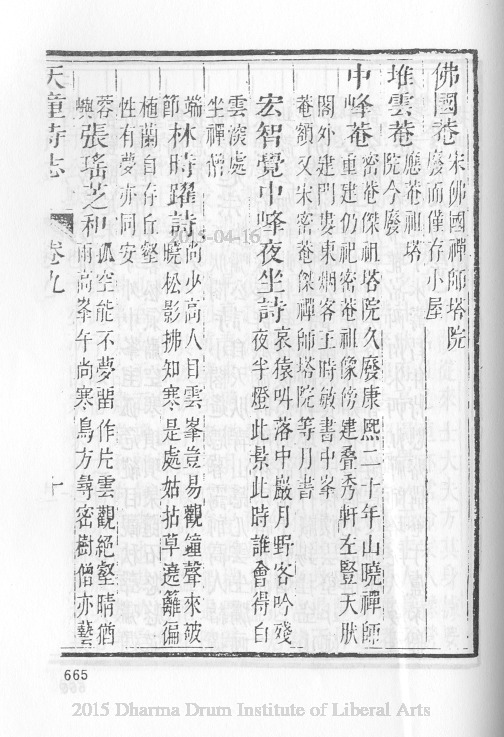 佛國菴 宋佛國禪師塔院
廢而僅存小屋
堆雲菴 應菴祖塔
院今廢
中峰菴 密菴傑祖塔院久廢康熙二十年山曉禪師
重建仍祀密菴祖像傍建叠秀軒左豎天
閣外建門婁東烟客王時敏書中峯
菴額又宋密菴傑禪師塔院等月書
宏智覺中峰夜坐詩 哀猿叫落中巖月野客吟殘
夜半燈此景此時誰會得白
雲深處
坐禪僧
端節 林時躍詩 尚少高人目雲峯豈易觀鐘聲來破
曉松影拂知寒是處姑拈草遶籬徧
植蘭自存丘壑
性有夢亦同安
蓉嶼 張瑤芝和 孤空能不夢畱作片雲觀絕壑晴猶
雨高峯午尚寒鳥方尋密樹僧亦藝
天童寺志 卷九 十
15-04-16
665
2015 Dharma Drum Institute of Liberal Arts